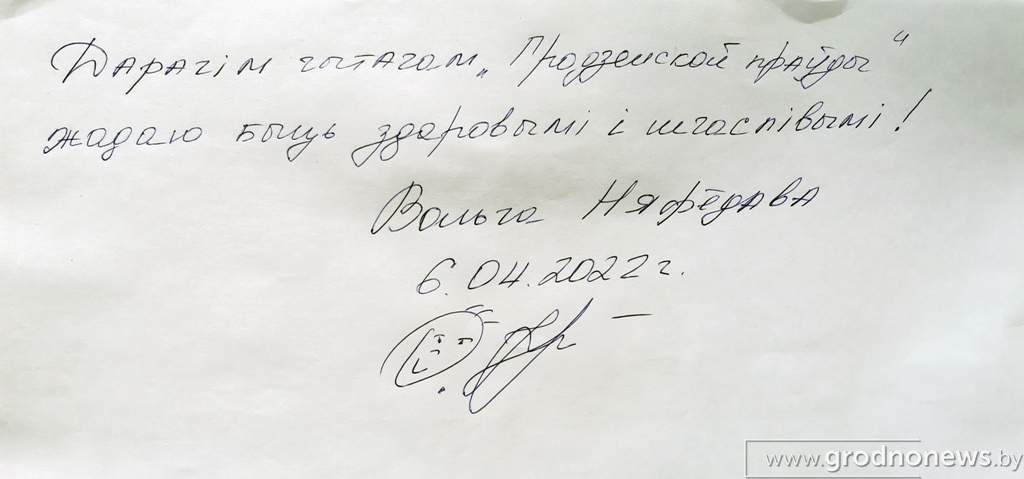 Дарагім чытачам „Гродзенскай праўды“
жадаю быць здаровымі і шчаслівымі!
Вольга Няфёдава
6.04.2022 г.
www.grodnonews.by